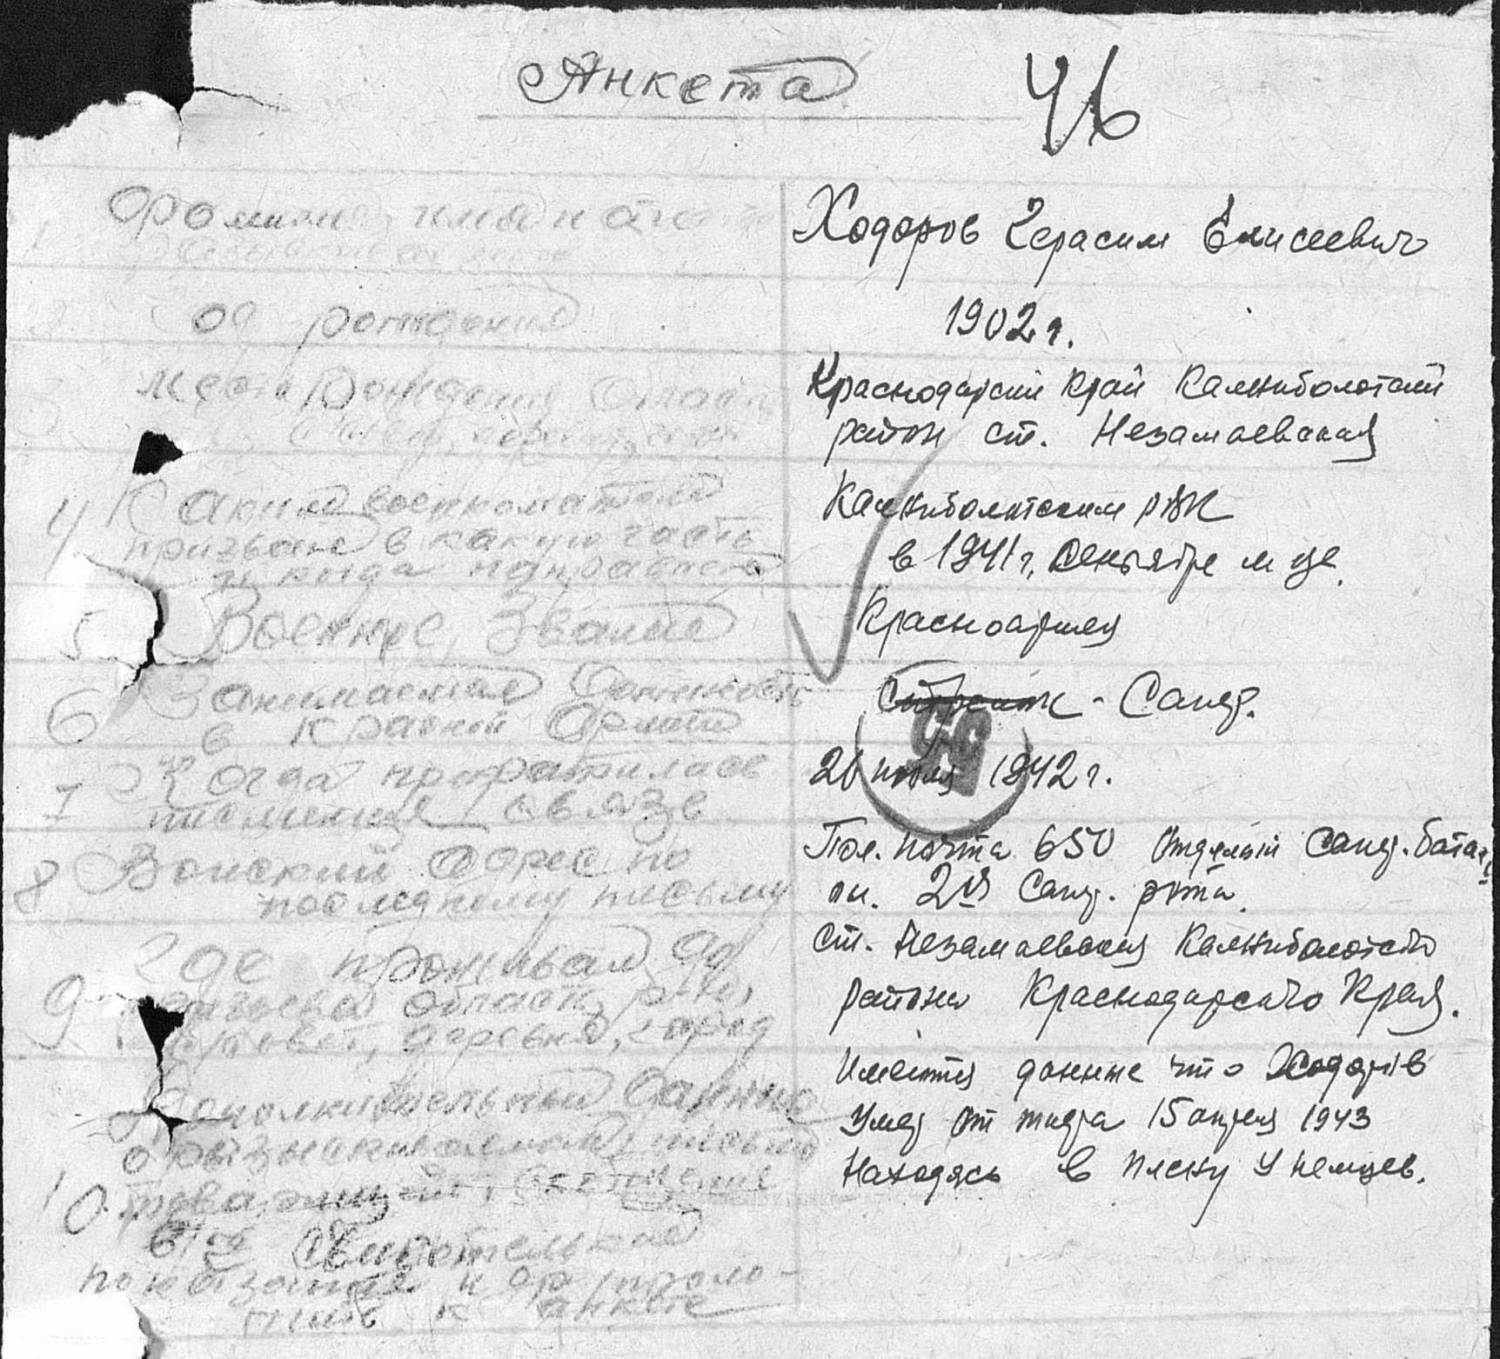 Анкета
46
Фамилия, имя и отчество
Ходоров Герасим Елисеевич
Год рождения
1902 г.
место рождения область
Краснодарский край Калниболотский
район ст. Незамаевская
4 Каким военкоматом
призван в какую часть
и когда направлен
Калниболотским РВК
в 1941 г. сентябре м це.
5 Военное звание
Красноармеец
6 Занимаемая должность
в Красной Армии
Санит.
7 Когда прекратилась
письменная связь
26 июля 1942 г.
8 Воинский адрес по
последнему письму
Пол. почта 650 отдельный Санит. бата
он. 2ая Санит. рота.
9 Где проживал до
призыва область, р-н,
с/совет, деревня, город
ст. Незамаевская Калниболотского
района Краснодарского Края.
10 Дополнительные данные
о разыскиваемом, письма
товарищей, извещения
свидетельские
показания и др прило-
жить к анкете
Имеются данные что Ходоров
умер от тифа 15 апреля 1943
находясь в плену у немцев.